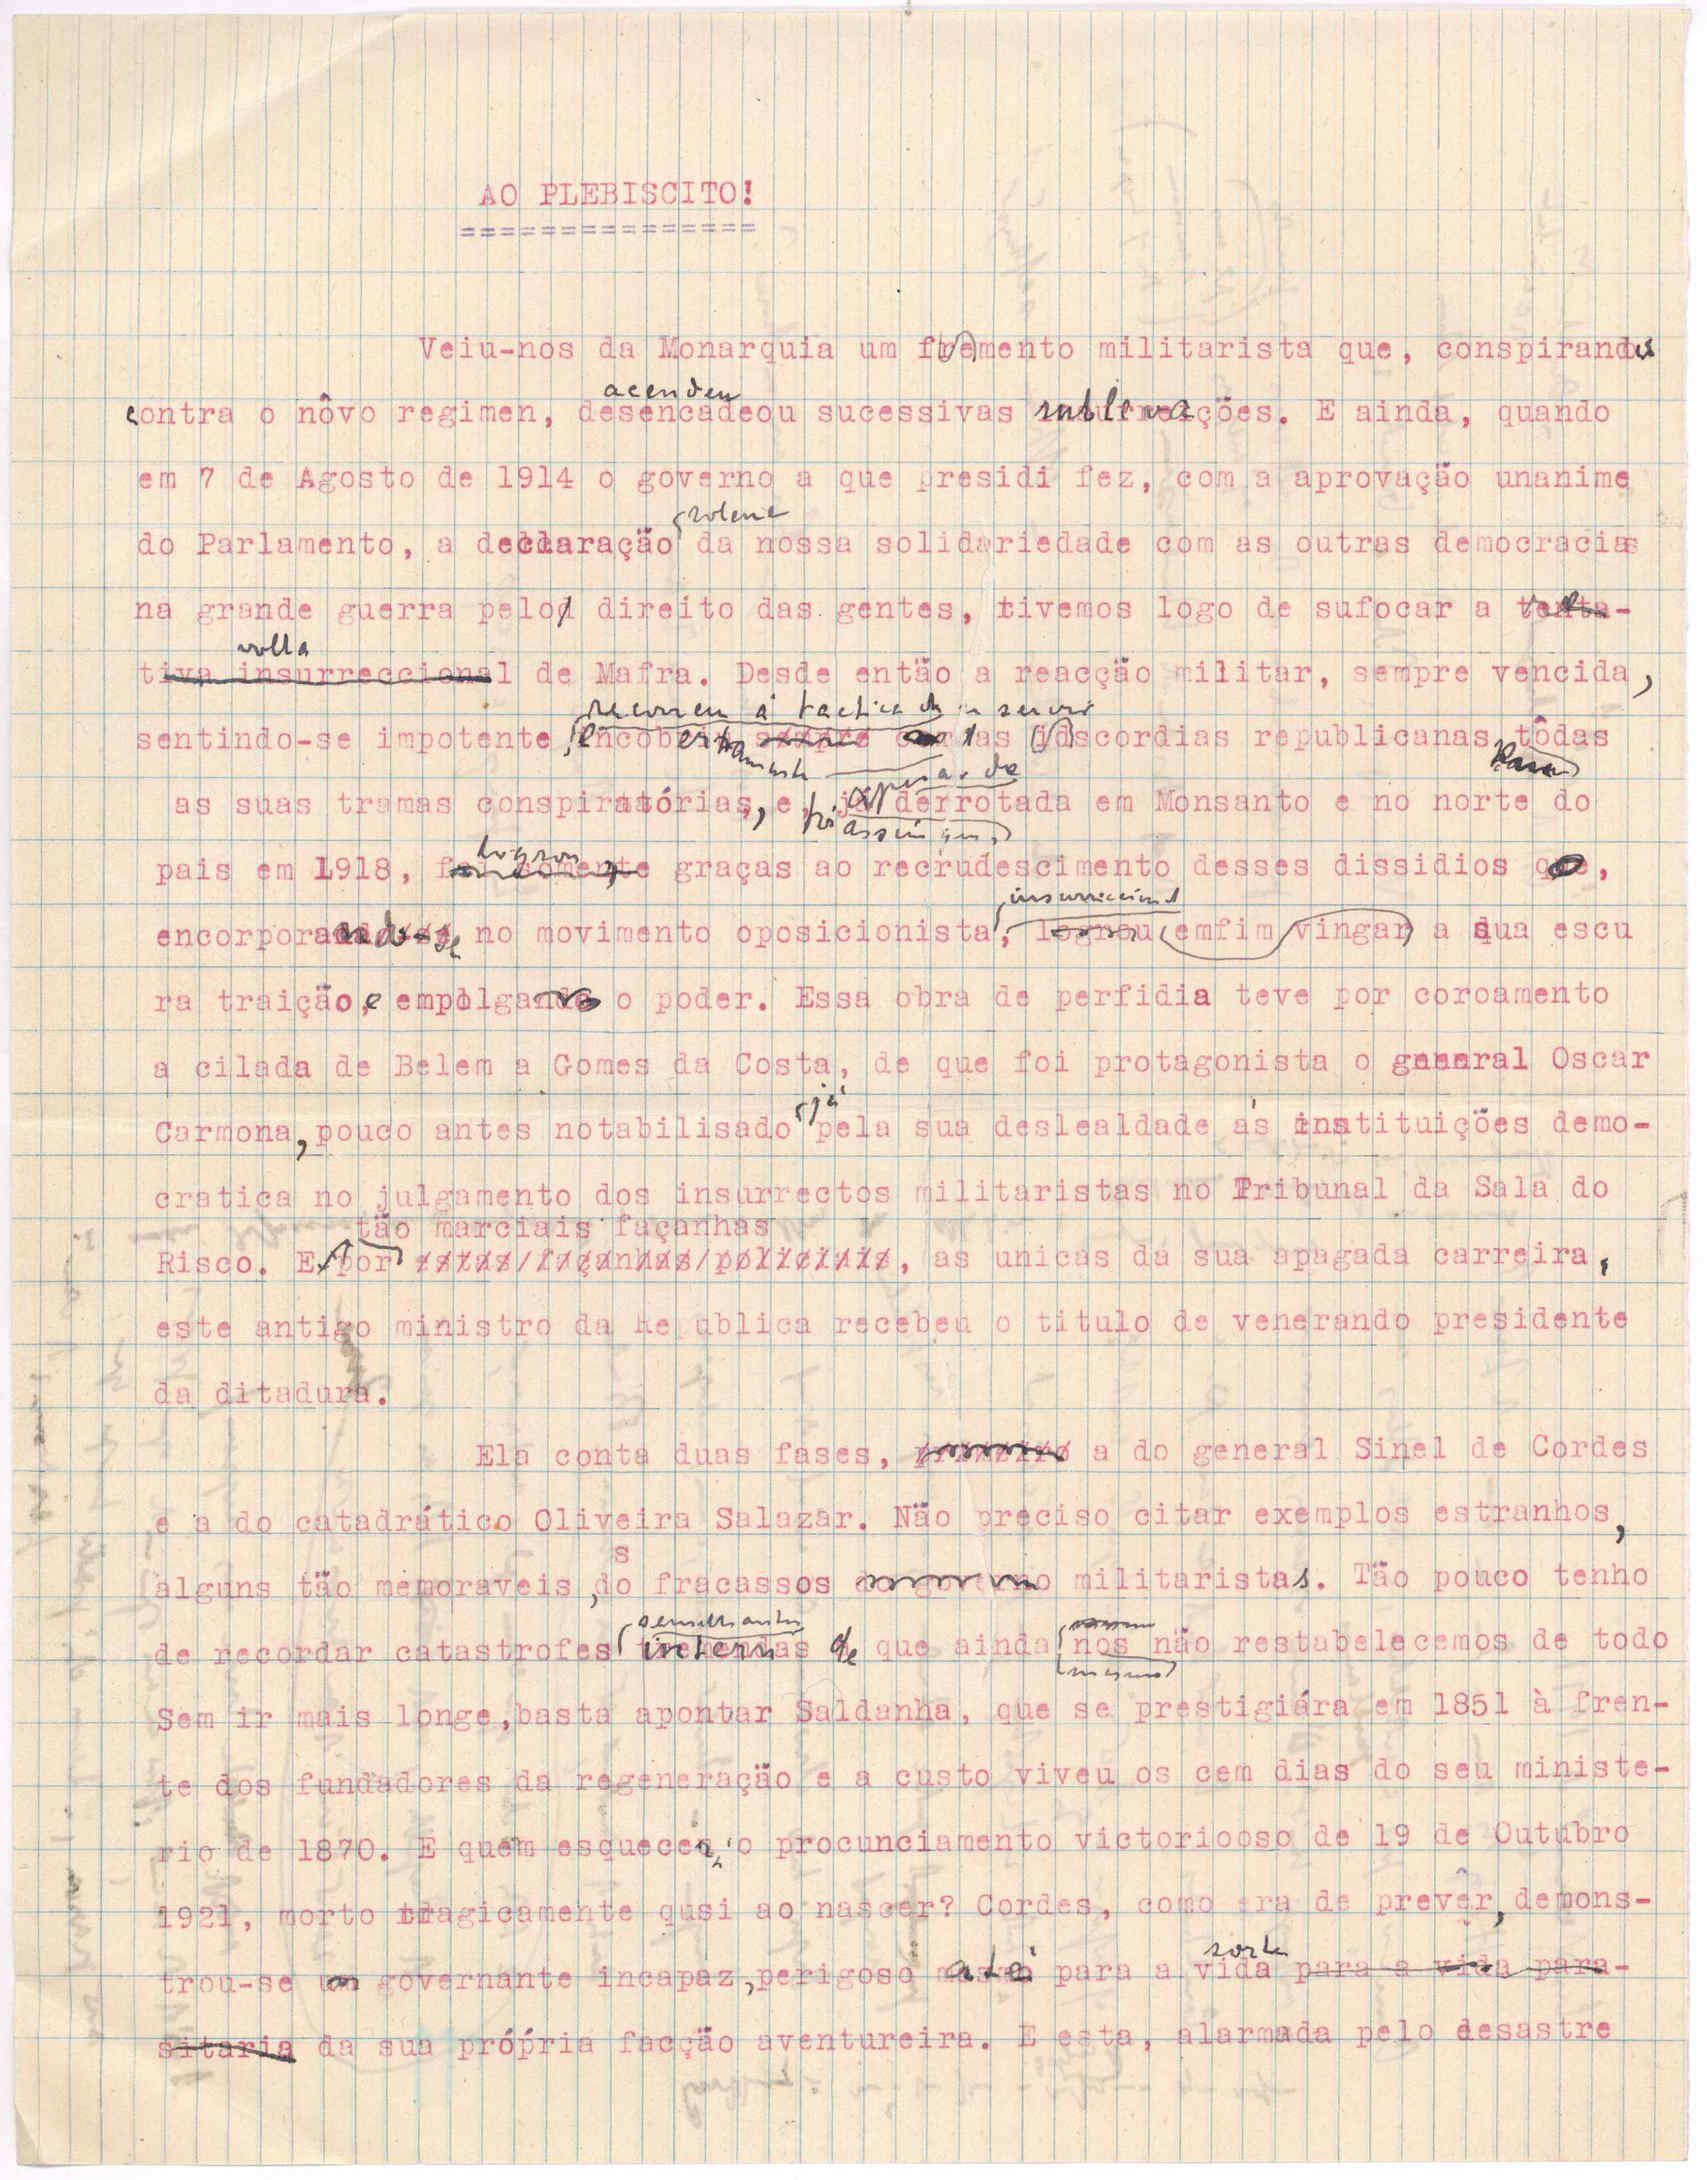 AO PLEBISCITO!
===============
Veiu-nos da Monarquia um fremento militarista que, conspirando
acendeu
contra o nôvo regimen, desencadeou sucessivas sublevações. E ainda, quando
em 7 de Agosto de 1914 o governo a que presidi fez, com a aprovação unanime
solene
do Parlamento, a declaração da nossa solidariedade com as outras democracias
na grande guerra pelo direito das gentes, tivemos logo de sufocar a tenta-
volta
tiva insurreccional de Mafra. Desde então a reacção militar, sempre vencida,
recorreu á tactica de se servir
sentindo-se impotente, encober as discordias republicanas tôdas
para
apesar de
as suas tramas conspiratórias, e, já derrotada em Monsanto e no norte do
assim que
logrou
pais em 1918, foi somente graças ao recrudescimento desses dissidios que,
insurreccional
encorporando-se no movimento oposicionista, logrou emfim vingar a sua escu
ra traição, e empolgando o poder. Essa obra de perfidia teve por coroamento
a cilada de Belem a Gomes da Costa, de que foi protagonista o general Oscar
já
Carmona, pouco antes notabilisado pela sua deslealdade ás instituições demo-
cratica no julgamento dos insurrectos militaristas no Tribunal da Sala do
tão marciais façanhas
Risco. E por estas/façanhas/policiais, as unicas da sua apagada carreira,
este antigo ministro da Republica recebeu o titulo de venerando presidente
da ditadura.
Ela conta duas fases, primeiro a do general Sinel de Cordes
e a do catadrático Oliveira Salazar. Não preciso citar exemplos estranhos,
s
alguns tão memoraveis, do fracassos do governo militaristas. Tão pouco tenho
semelhantes
de recordar catastrofes internas de que ainda nos não restabelecemos de todo
mesmo
Sem ir mais longe, basta apontar Saldanha, que se prestigiára em 1851 à fren-
te dos fundadores da regeneração e a custo viveu os cem dias do seu ministe-
rio de 1870. E quem esquecea, o procunciamento victoriooso de 19 de Outubro
1921, morto tragicamente qusi ao nascer? Cordes, como era de prevêr, demons-
sorte
trou-se um governante incapaz, perigoso até para a vida para a vida para-
sitaria da sua própria facção aventureira. E esta, alarmada pelo desastre